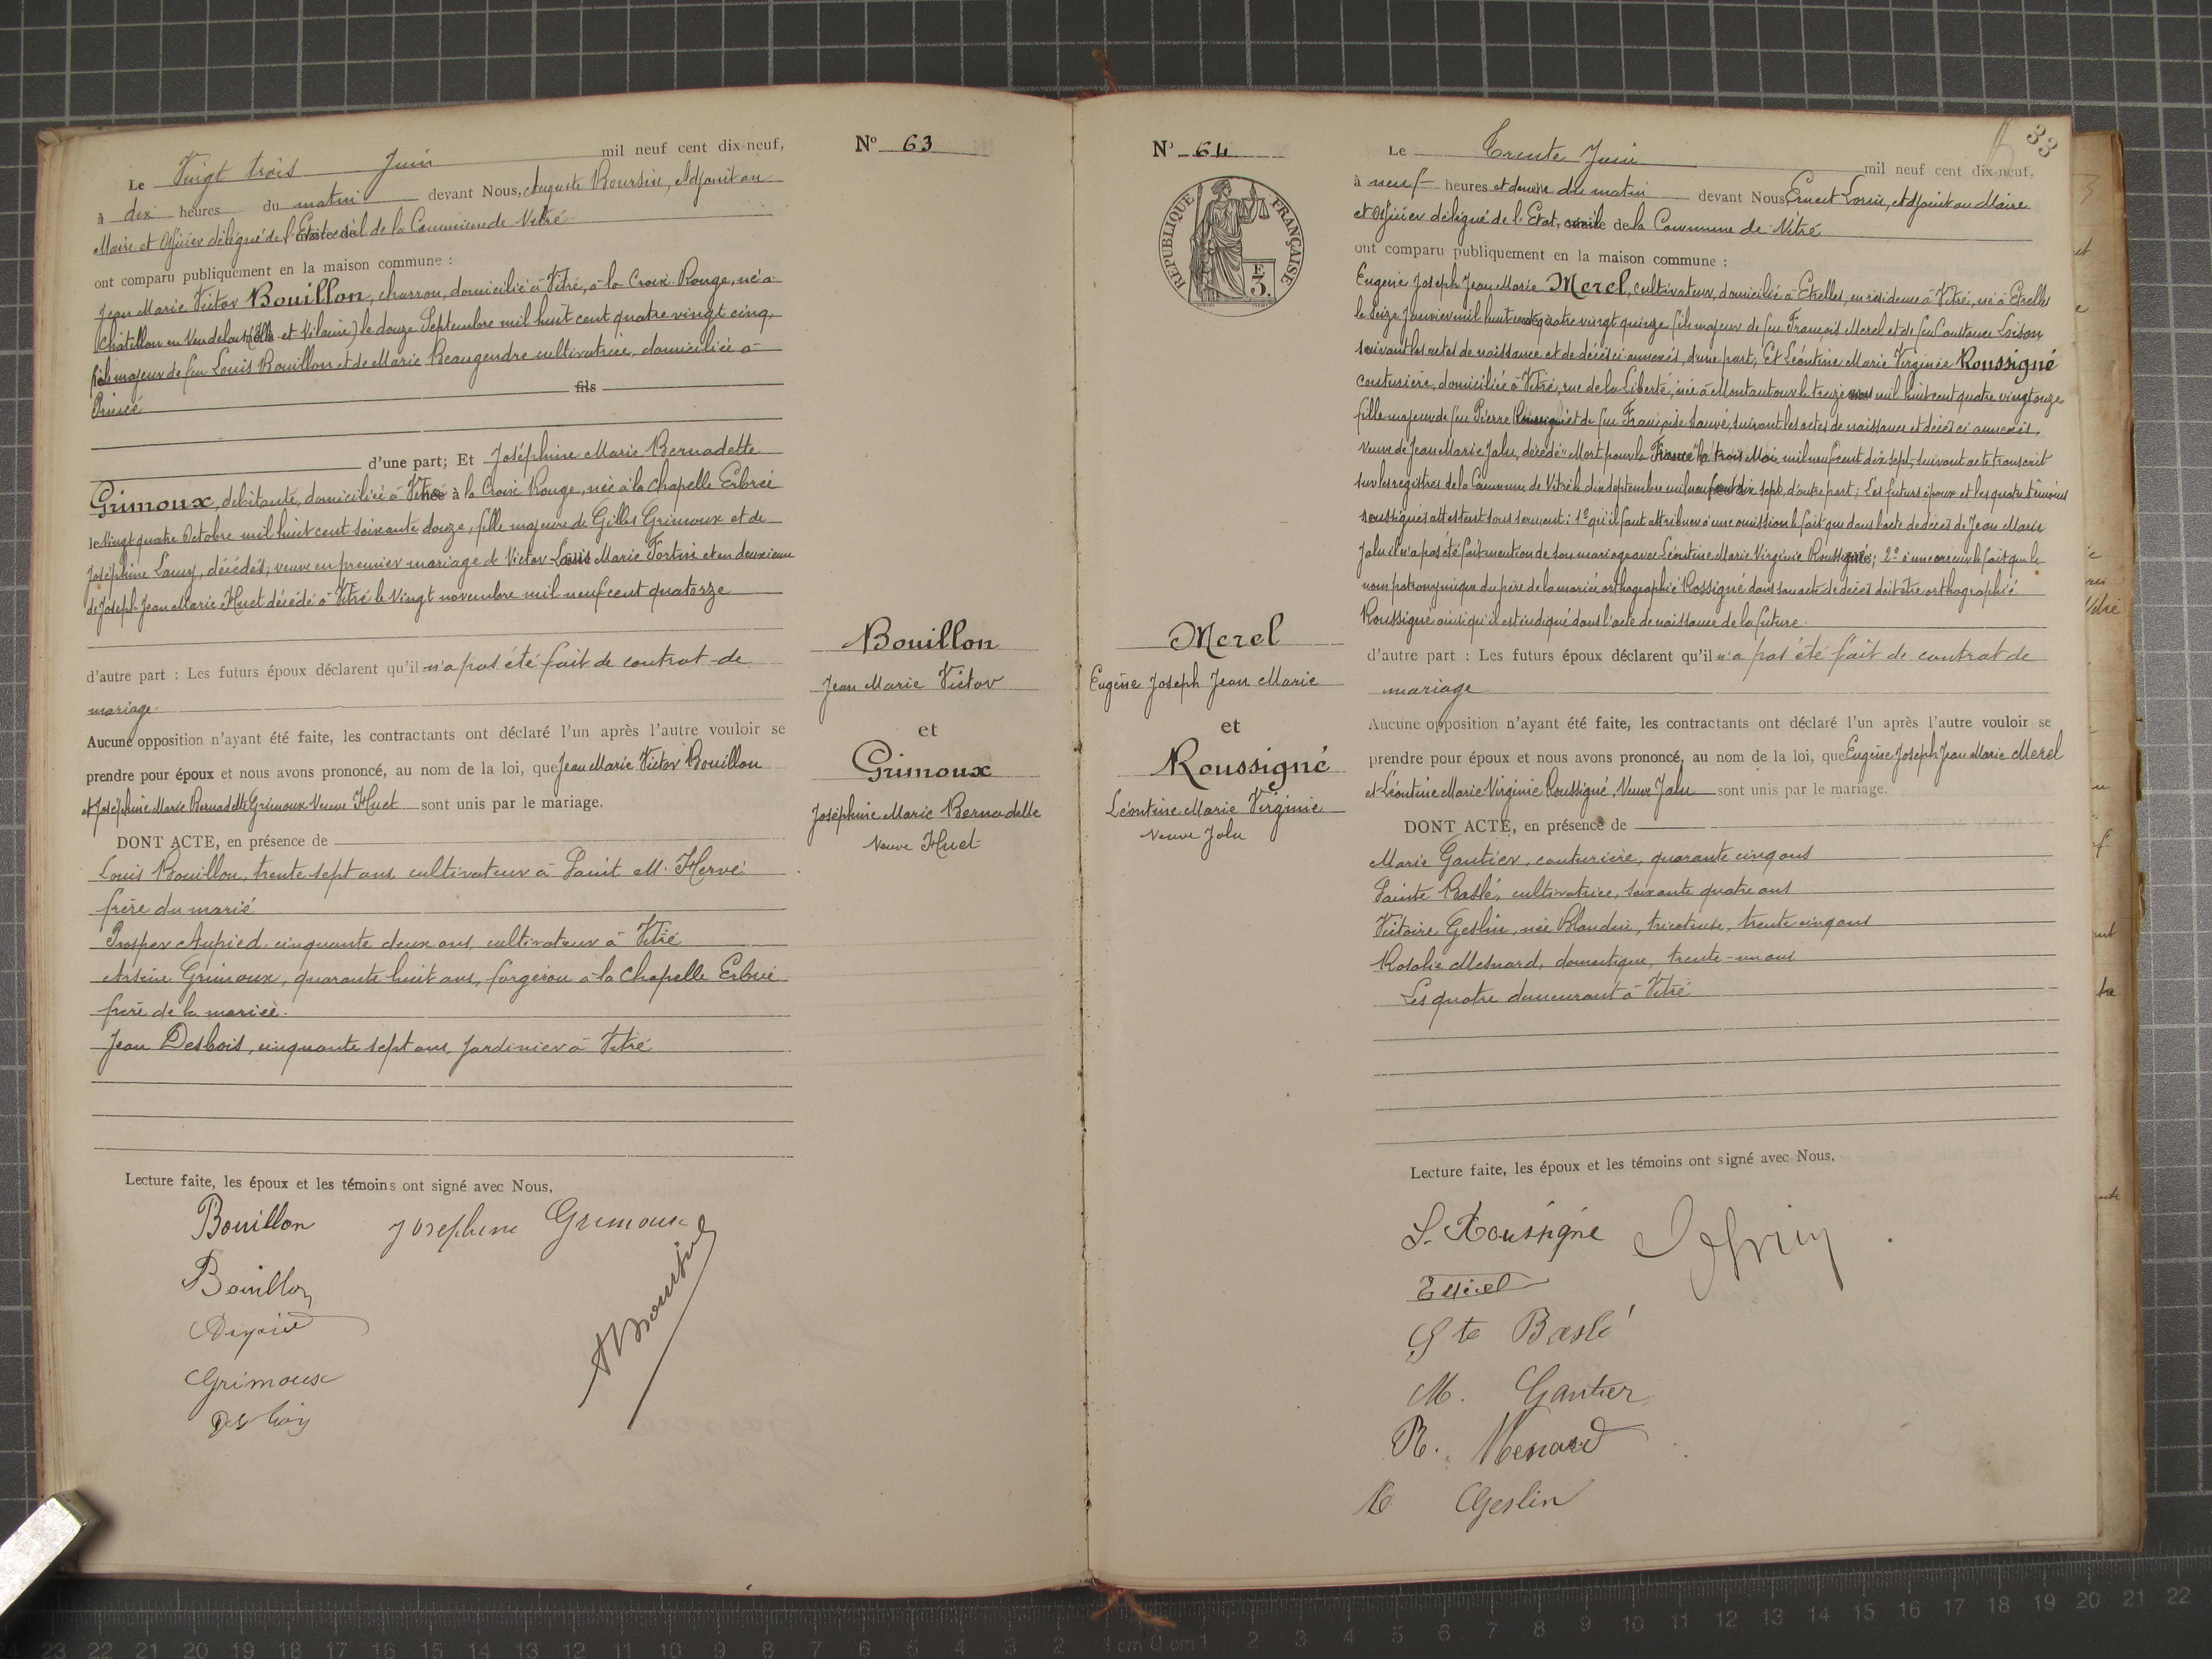 Le Vingt trois Juin mil neuf cent dix-neuf,
à dix heures du matin devant Nous, Auguste Boursin, Adjoint au
Maire et Officier délégué de l'Etat civil de la Commune de Vitré
ont comparu publiquement en la maison commune :
Jean Marie Victor Bouillon, charron, domicilié à Vitré, à la Croix Rouge, né à
Châtillon en Vendelais (Ille et Vilaine) le douze Septembre mil huit cent quatre vingt cinq,
fils majeur de feu Louis Bouillon et de Marie Beaugendre cultivatrice, domiciliée à
fils
Princé
d'une part; Et Joséphine Marie Bernadette
Grimoux, débitante, domiciliée à Vitré à la Croix Rouge, née à la Chapelle Erbrée
le Vingt quatre Octobre mil huit cent soixante douze, fille majeure de Gilles Grimoux et de
Joséphine Lamy, décédés; veuve en premier mariage de Victor Louis Marie Fortin et en deuxième
de Joseph Jean Marie Huet décédé à Vitré le Vingt novembre mil neuf cent quatorze
d'autre part : Les futurs époux déclarent qu'il n'a pas été fait de contrat de
mariage.
Aucune opposition n'ayant été faite, les contractants ont déclaré l'un après l'autre vouloir se
prendre pour époux et nous avons prononcé, au nom de la loi, que Jean Marie Victor Bouillon
et Joséphine Marie Bernadette Grimoux Veuve Huet sont unis par le mariage.
DONT ACTE, en présence de
Louis Bouillon, trente sept ans, cultivateur à Saint M. Hervé
frère du marié
Prosper Aupied cinquante deux ans, cultivateur à Vitré
Arsène Grimoux, quarante huit ans, forgeron à la Chapelle Erbrée
frère de la mariée.
Jean Desbois, cinquante sept ans, jardinier à Vitré
Lecture faite, les époux et les témoins ont signé avec Nous,
Bouillon Joséphine Grimoux
Bouillon
Aupied
ABoursin
Grimoux
Desbois
N° 63
Bouillon
Jean Marie Victor
et
Grimoux
Joséphine Marie Bernadette
Veuve Huet
33
N° 64
RÉPUBLIQUE FRANÇAISE
E
3.
Merel
Eugène Joseph Jean Marie
et
Roussigné
Léontine Marie Virginie
Veuve Jalu
Le Trente Juin mil neuf cent dix-neuf,
à neuf heures et demie du matin devant Nous, Ernest Lorin, Adjoint au Maire
et Officier délégué de l'Etat, civile de la Commune de Vitré
ont comparu publiquement en la maison commune :
Eugène Joseph Jean Marie Merel, cultivateur, domicilié à Etrelles, en résidence à Vitré, né à Etrelles
le Seize Janvier mil huit cent quatre vingt quinze fils majeur de feu François Merel et de feu Constance Loison
suivant les actes de naissance et de décès ci annexés, d'une part; Et Léontine Marie Virginie Roussigné
couturière, domiciliée à Vitré, rue de la Liberté, née à Montautour le treize mars mil huit cent quatre vingt onze
fille majeure de feu Pierre Roussigné et de feu Françoise Sauvé, suivant les actes de naissance et décès ci annexés.
Veuve de Jean Marie Jalu, décédé "Mort pour la France" le trois Mai mil neuf cent dix sept, suivant acte transcrit
sur les registres de la Commune de Vitré le dix septembre mil neuf cent dix sept, d'autre part; Les futurs époux et les quatre témoins
soussignés attestent sous serment: 1° qu'il faut attribuer à une omission le fait que dans l'acte de décès de Jean Marie
Jalu il n'a pas été fait mention de son mariage avec Léontine Marie Virginie Roussigné; 2° à une erreur le fait que le
nom patronymique du père de la mariée orthographié Rossigné dans son acte de décès doit être orthographié
Roussigné ainsi qu'il est indiqué dans l'acte de naissance de la future.
d'autre part : Les futurs époux déclarent qu'il n'a pas été fait de contrat de
mariage
Aucune opposition n'ayant été faite, les contractants ont déclaré l'un après l'autre vouloir se
prendre pour époux et nous avons prononcé, au nom de la loi, que Eugène Joseph Jean Marie Merel
et Léontine Marie Virginie Roussigné, Veuve Jalu sont unis par le mariage.
DONT ACTE, en présence de
Marie Gautier, couturière, quarante cinq ans
Sainte Baslé, cultivatrice, soixante quatre ans
Victoire Geslin, née Blandin, tricoteuse, trente cinq ans
Rosalie Mesnard, domestique, trente-un ans
Les quatre demeurant à Vitré
Lecture faite, les époux et les témoins ont signé avec Nous,
L. Roussigné
E Merel
Ste Baslé
M. Gautier
R. Mesnard
Geslin